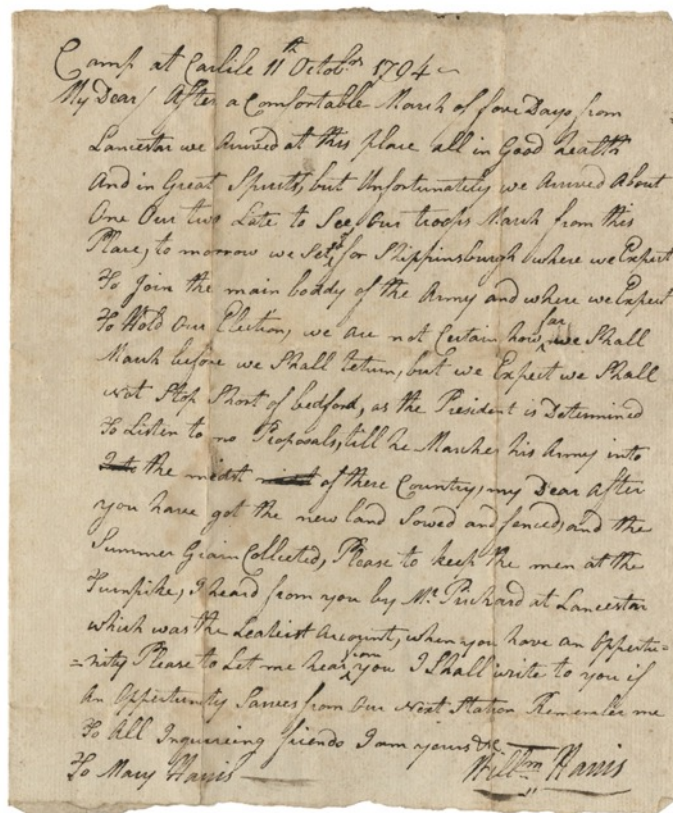 Camp at Carlile 11th Octobr 1794
My Dear / After a Comfortable March of four Days from
Lancester we Arrived at this place all in Good health
And in Great Spirits, but Unfortunately we Arrived About
One Our two Late to See, our troops March from this
Place, to morrow we Set of for Shippinsburgh where we Expect
To Join the main boddy of the Army and where we Expect
To Hold Our Election, we are not Certain how far we Shall
March before we Shall return, but we Expect we Shall
not Stop Short of bedford, as the President is Determined
To Listen to no Proposals, till he Marches his Army into
the midst of there Country, my Dear After
you have got the new land Sowed and fenced, and the
Summer Grain Collected, Please to keep the men at the
Turnpike, I heard from you by Mr. Prichard at Lancester
which was the Leatest Account, when you have an Opportu=
=nity Please to Let me hear from you I Shall write to you if
An Opportunity Sarves from Our Next Station Remember me
To All Inquireing friends I am yours &c
To Mary Harris Willm Harris